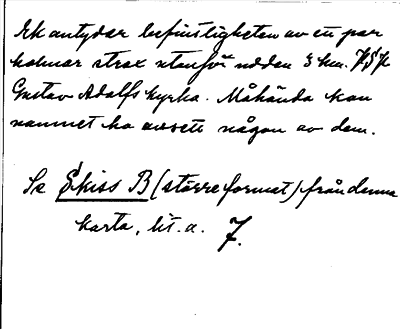 Ek antyder befintligheten av en par
holmar strax utanför udden 3 km. f S f
Gustav Adolfs kyrka. Måhända kan
namnet ha avsett någon av dem.
Se Skiss B (större format) från denna
karta, lit. a. 7.